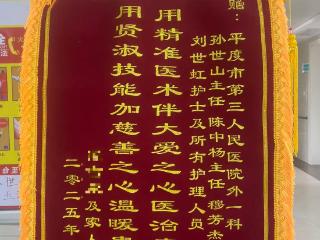 赠：平度市第三人民医院外一科
孙世山主任 陈中杨主任 穆芳杰
刘世虹护士及所有护理人员
用精准医术伴大爱之心医治
用贤淑技能加慈善之心温暖
及家人
二〇二五年